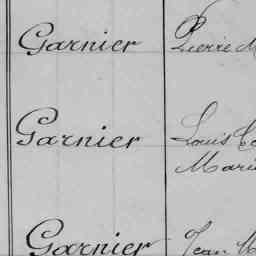 Garnier Pierre
Garnier Louis
Marie
Garnier Jean